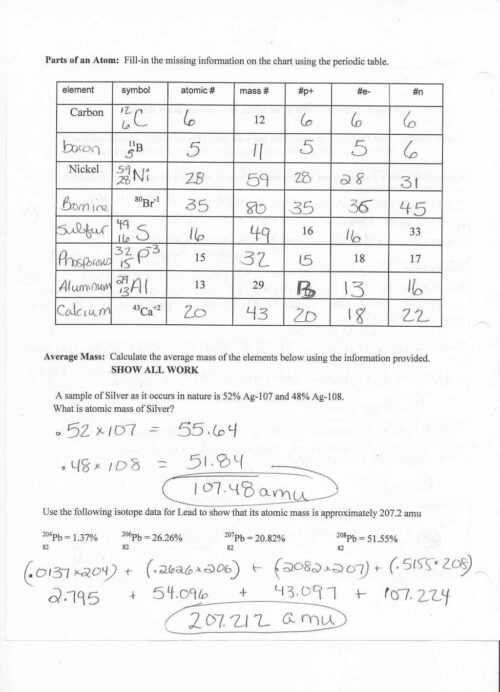 Parts of an Atom: Fill-in the missing information on the chart using the periodic table.
element symbol atomic # mass # #p+ #e- #n
Carbon ¹²₆C 6 12 6 6 6
boron ¹¹₅B 5 11 5 5 6
Nickel ⁵⁹₂₈Ni 28 59 28 28 31
Bomine ⁸⁰Br⁻¹ 35 80 35 36 45
Sulfur ⁴⁹₁₆S 16 49 16 16 33
Phosporous ³²₁₅P⁻³ 15 32 15 18 17
Aluminum ²⁹₁₃Al 13 29 13 16
Calcium ⁴³Ca⁺² 20 43 20 18 22
Average Mass: Calculate the average mass of the elements below using the information provided.
SHOW ALL WORK
A sample of Silver as it occurs in nature is 52% Ag-107 and 48% Ag-108.
What is atomic mass of Silver?
.52 × 107 = 55.64
.48 × 108 = 51.84
107.48 amu
Use the following isotope data for Lead to show that its atomic mass is approximately 207.2 amu
²⁰⁴Pb = 1.37% ²⁰⁶Pb = 26.26% ²⁰⁷Pb = 20.82% ²⁰⁸Pb = 51.55%
82 82 82 82
(.0137×204) + (.2626×206) + (.2082×207) + (.5155×208)
2.795 + 54.096 + 43.097 + 107.224
207.212 amu